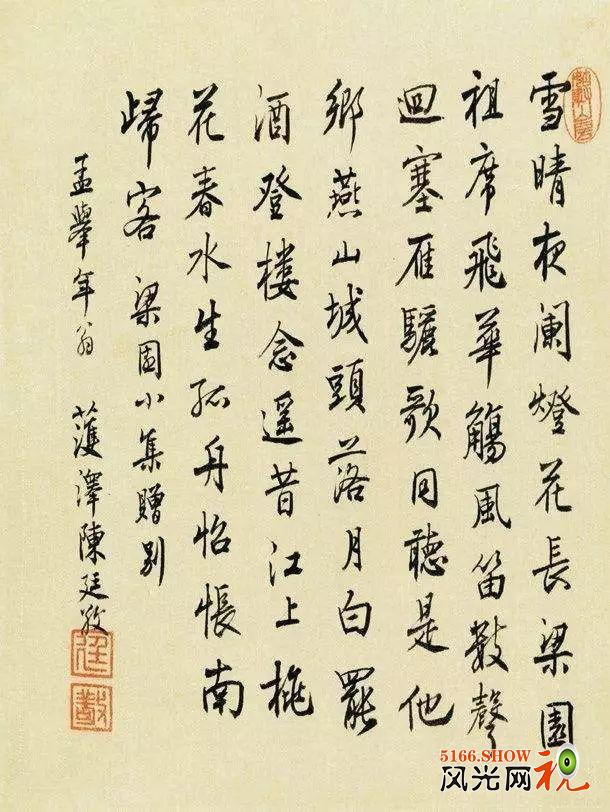 雪晴夜闌燈花長梁園
祖席飛華觴風笛數聲
迴塞雁驪歌同聽是他
鄉燕山城頭落月白罷
酒登樓念遥昔江上桃
花春水生孤舟怊悵南
歸客 梁園小集贈別
孟舉年翁 濩澤陳廷敬
廷敬
5166.SHOW
风光网视